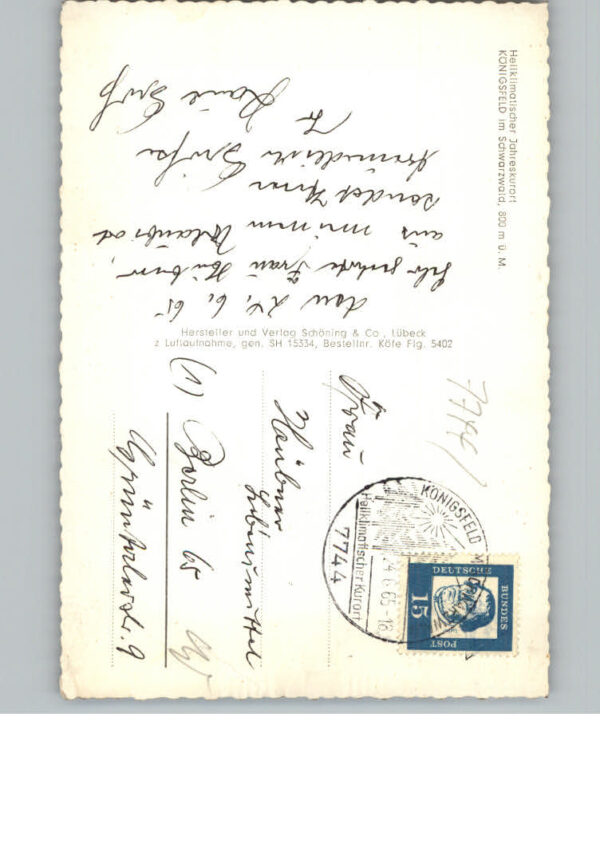 Heilklimatischer Jahreskurort
KÖNIGSFELD im Schwarzwald, 800 m ü. M.
den 24. 6. 65
Sehr geehrte Frau Häubner,
aus meinem Urlaubsort
sendet Ihnen
freundliche Grüße
Fr.
Hersteller und Verlag Schöning & Co., Lübeck
z Luftaufnahme, gen. SH 15334, Bestellnr. Köfe Flg. 5402
7744
KÖNIGSFELD
Heilklimatischer Kurort
7744
24.6.65-18
DEUTSCHE
BUNDES
POST
15
Frau
Häubner
Lebensmittel
(1) Berlin 65
Grüntalerstr. 9